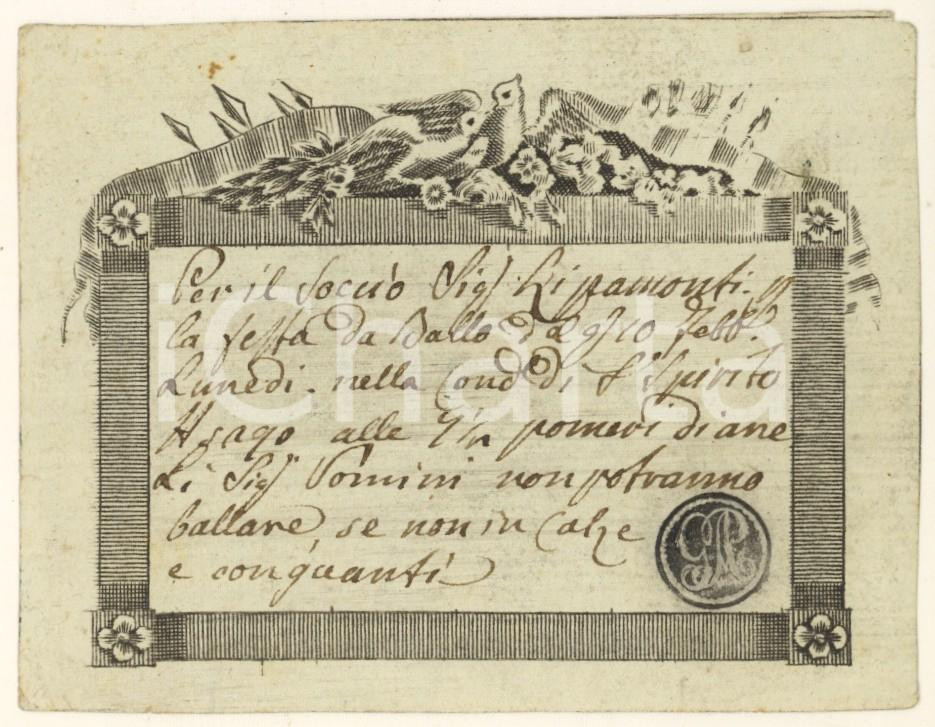 Per il Socció Sigr Ripamonti. p
la festa da Ballo del gio 10 Febb.
Lunedi. nella Contda di S Spirito
alle 9 1/2 pomeridiane
Li Sigri Uomini non potranno
ballare, se non in Calze
e con guanti
iCharta